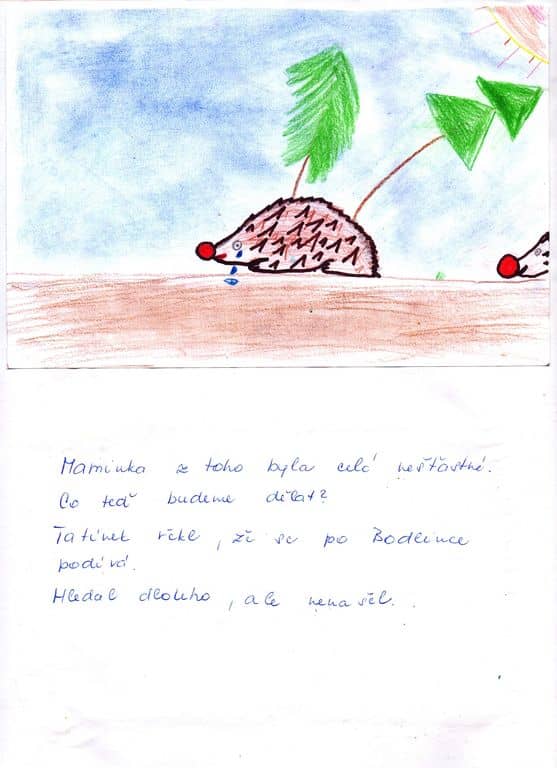 Maminka z toho byla celá nešťastná.
Co teď budeme dělat?
Tatínek řekl, že se po Bodlince
podívá.
Hledal dlouho, ale nenašel.